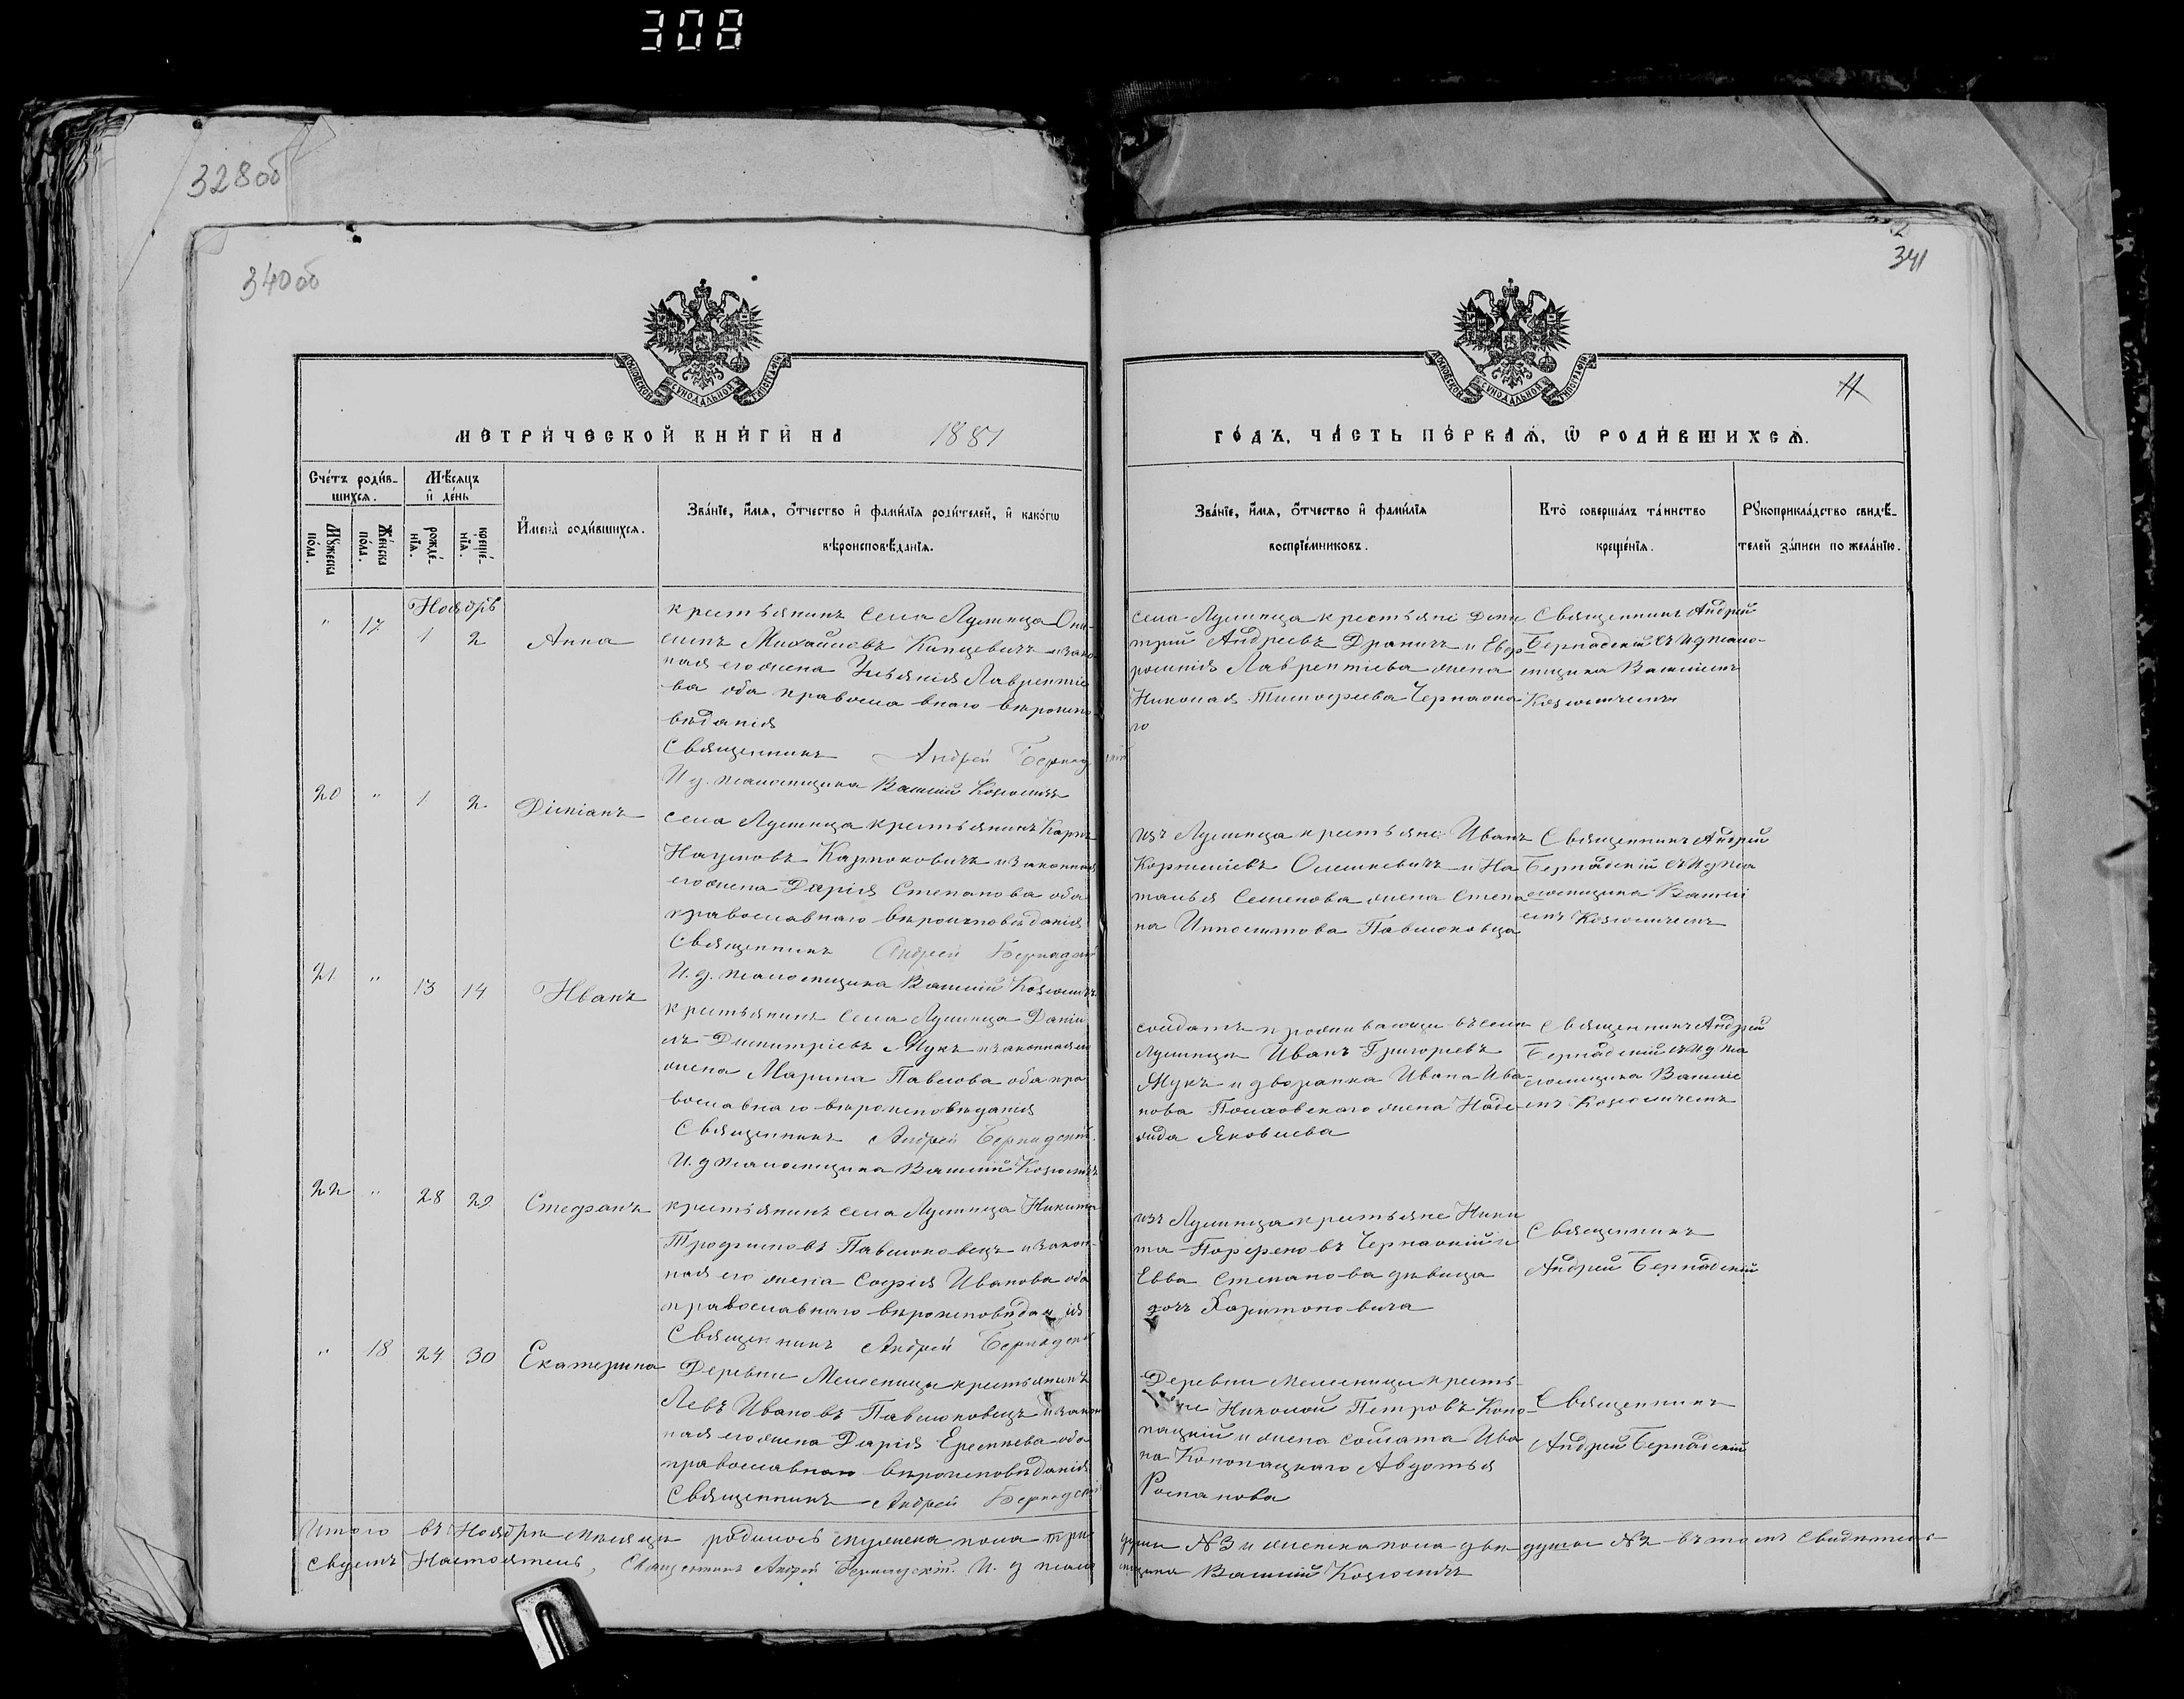 308
328об
340об
341
11
МОСКОВСКОЙ СѴНОДАЛЬНОЙ ТИПОГРАФІИ
МОСКОВСКОЙ СѴНОДАЛЬНОЙ ТИПОГРАФІИ
МЕТРИ́ЧЕСКОЙ КНИ́ГИ НА 1881
ГО́ДЪ, ЧА́СТЬ ПЕ́РВАѦ, Ѡ РОДИ́ВШИХСѦ.
Сче́тъ роди́в-
шихсѧ.
Мꙋ́жеска по́ла.
Же́нска по́ла.
Мѣ́сѧцъ
и де́нь
рожде́-
нїѧ.
креще́-
нїѧ.
Имена̀ роди́вшихсѧ.
Зва́нїе, и́мѧ, о́тчество и фами́лїѧ роди́телей, и како́гѡ
вѣроисповѣ́данїѧ.
Зва́нїе, и́мѧ, о́тчество и фами́лїѧ
воспрїе́мниковъ.
Кто̀ соверша́лъ та́инство
креще́нїѧ.
Рꙋкоприкла́дство свидѣ́-
телей за́писи по жела́нїю.
Ноябрь
" 17 1 2 Анна
крестьянинъ села Лулинца Они-
симъ Михайловъ Кунцевичъ и зако
ная его жена Ульянія Лаврентіе
ва оба православнаго вѣроиспо-
вѣданія
Священникъ Андрей Бернадскій
И д. псаломщика Василій Козюличъ
села Лулинца крестьяне Дми
трій Андреевъ Драничъ и Евф
росинія Лаврентіева жена
Николая Тимофеева Чернаока-
го
Священникъ Андрей
Бернадскій съ и д псало-
мщика Василіемъ
Козюличемъ
20 " 1 2 Диміанъ
села Лулинца крестьянинъ Карпъ
Наумовъ Карпоковичъ и законная
его жена Дарія Степанова оба
православнаго вѣроисповѣданія
Священникъ Андрей Бернадскій
И. д. псаломщика Василій Козюличъ
изъ Лулинца крестьяне Иванъ
Корниліевъ Олешкевичъ и На
талья Семенова жена Степа
на Ипполитова Павлюковца
Священникъ Андрей
Бернадскій съ и д пса
ломщика Василі
емъ Козюличемъ
21 " 13 14 Иванъ
крестьянинъ села Лулинца Дани
лъ Димитріевъ Жукъ и законная его
жена Марина Павлова оба пра
вославнаго вѣроисповѣданія
Священникъ Андрей Бернадскій.
И. д псаломщика Василій Козюличъ
солдатъ проживающи въ селѣ
Лулинцѣ Иванъ Григорьевъ
Жукъ и дворянка Ивана Ива-
нова Полховскаго жена Наде
жда Яковлева
Священникъ Андрей
Бернадскій съ и д пса
ломщика Василіе
мъ Козюличемъ
22 " 28 29 Стефанъ
крестьянинъ села Лулинца Никита
Трофимовъ Павлюковецъ и закон-
ная его жена Софія Иванова оба
православнаго вѣроисповѣданія
Священникъ Андрей Бернадскій
изъ Лулинца крестьяне Ники
та Порфеновъ Чернаокій и
Евва Степанова дѣвица
дочъ Харитоновича
Священникъ
Андрей Бернадскій
" 18 24 30 Екатерина
Деревни Мелесницы крестьянинъ
Левъ Ивановъ Павлюковецъ и закон
ная его жена Дарія Еремѣева оба
православнаго вѣроисповѣданія
Священникъ Андрей Бернадскій
Деревни Мелесницы кресть
яне Николай Петровъ Коно-
пацкій и жена солдата Ива
на Конопацкаго Авдотья
Романова
Священникъ
Андрей Бернадскій
Итого въ Ноябрѣ мѣсяцѣ родилось мужеска пола три души №3 и женска пола двѣ души №2 въ томъ свидѣтель-
свуемъ Настоятель, Священникъ Андрей Бернадскій. И. д псаломщика Василій Козюличъ